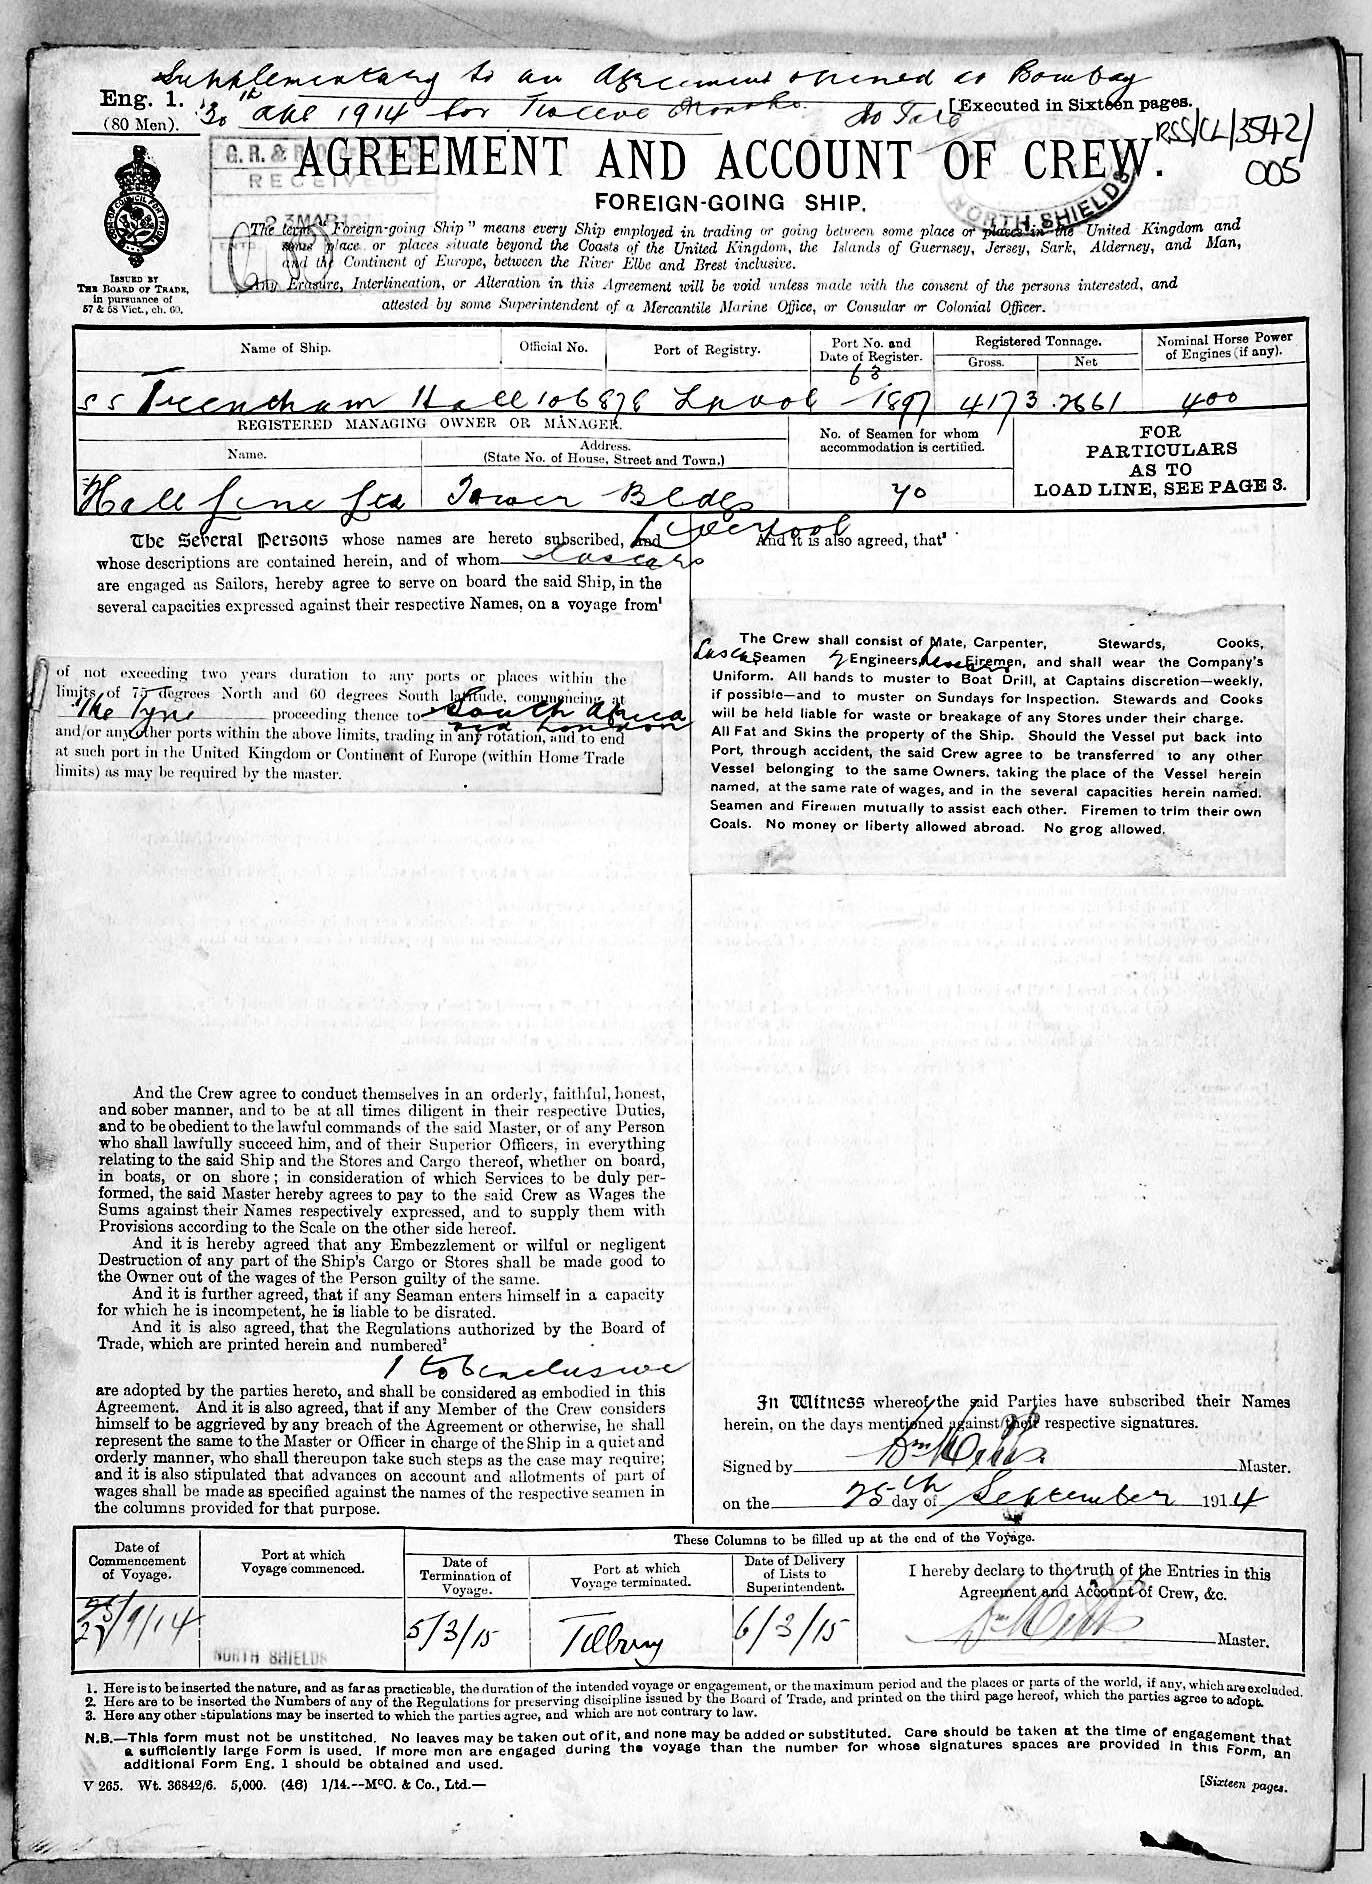 Supplementary to an Agreement opened at Bombay
Eng. 1.
30th 1914 for Twelve Months.
[Executed in Sixteen pages.
(80 Men).
RSS/CL/3542/
005
G. R. &
RECEIVED
23 MAR
AGREEMENT AND ACCOUNT OF CREW.
FOREIGN-GOING SHIP.
NORTH SHIELDS
The term "Foreign-going Ship" means every Ship employed in trading or going between some place or places in the United Kingdom and
some place or places situate beyond the Coasts of the United Kingdom, the Islands of Guernsey, Jersey, Sark, Alderney, and Man,
and the Continent of Europe, between the River Elbe and Brest inclusive.
Any Erasure, Interlineation, or Alteration in this Agreement will be void unless made with the consent of the persons interested, and
attested by some Superintendent of a Mercantile Marine Office, or Consular or Colonial Officer.
ISSUED BY
THE BOARD OF TRADE,
in pursuance of
57 & 58 Vict., ch. 60.
Name of Ship.
Official No.
Port of Registry.
Port No. and
Date of Register.
Registered Tonnage.
Gross.
Net
Nominal Horse Power
of Engines (if any).
SS Trentham Hall 106878 Lpool 63/1897 4173 2661 400
REGISTERED MANAGING OWNER OR MANAGER.
Name.
Address.
(State No. of House, Street and Town.)
No. of Seamen for whom
accommodation is certified.
FOR
PARTICULARS
AS TO
LOAD LINE, SEE PAGE 3.
Hall Line Ltd Tower Bldgs 70
Liverpool
The Several Persons whose names are hereto subscribed, and
whose descriptions are contained herein, and of whom Lascars
are engaged as Sailors, hereby agree to serve on board the said Ship, in the
several capacities expressed against their respective Names, on a voyage from¹
of not exceeding two years duration to any ports or places within the
limits of 75 degrees North and 60 degrees South latitude, commencing at
The Tyne proceeding thence to South Africa
via London
and/or any other ports within the above limits, trading in any rotation, and to end
at such port in the United Kingdom or Continent of Europe (within Home Trade
limits) as may be required by the master.
And the Crew agree to conduct themselves in an orderly, faithful, honest,
and sober manner, and to be at all times diligent in their respective Duties,
and to be obedient to the lawful commands of the said Master, or of any Person
who shall lawfully succeed him, and of their Superior Officers, in everything
relating to the said Ship and the Stores and Cargo thereof, whether on board,
in boats, or on shore; in consideration of which Services to be duly per-
formed, the said Master hereby agrees to pay to the said Crew as Wages the
Sums against their Names respectively expressed, and to supply them with
Provisions according to the Scale on the other side hereof.
And it is hereby agreed that any Embezzlement or wilful or negligent
Destruction of any part of the Ship's Cargo or Stores shall be made good to
the Owner out of the wages of the Person guilty of the same.
And it is further agreed, that if any Seaman enters himself in a capacity
for which he is incompetent, he is liable to be disrated.
And it is also agreed, that the Regulations authorized by the Board of
Trade, which are printed herein and numbered²
1 to 6 inclusive
are adopted by the parties hereto, and shall be considered as embodied in this
Agreement. And it is also agreed, that if any Member of the Crew considers
himself to be aggrieved by any breach of the Agreement or otherwise, he shall
represent the same to the Master or Officer in charge of the Ship in a quiet and
orderly manner, who shall thereupon take such steps as the case may require;
and it is also stipulated that advances on account and allotments of part of
wages shall be made as specified against the names of the respective seamen in
the columns provided for that purpose.
And it is also agreed, that³
The Crew shall consist of Mate, Carpenter, Stewards, Cooks,
Lascar Seamen Engineers, Lascars Firemen, and shall wear the Company's
Uniform. All hands to muster to Boat Drill, at Captains discretion—weekly,
if possible—and to muster on Sundays for Inspection. Stewards and Cooks
will be held liable for waste or breakage of any Stores under their charge.
All Fat and Skins the property of the Ship. Should the Vessel put back into
Port, through accident, the said Crew agree to be transferred to any other
Vessel belonging to the same Owners, taking the place of the Vessel herein
named, at the same rate of wages, and in the several capacities herein named.
Seamen and Firemen mutually to assist each other. Firemen to trim their own
Coals. No money or liberty allowed abroad. No grog allowed.
In Witness whereof the said Parties have subscribed their Names
herein, on the days mentioned against their respective signatures.
Signed by Master.
on the 25th day of September 1914
Date of
Commencement
of Voyage.
Port at which
Voyage commenced.
These Columns to be filled up at the end of the Voyage.
Date of
Termination of
Voyage.
Port at which
Voyage terminated.
Date of Delivery
of Lists to
Superintendent.
I hereby declare to the truth of the Entries in this
Agreement and Account of Crew, &c.
/9/14
NORTH SHIELDS
5/3/15
Tilbury
6/3/15
Master.
1. Here is to be inserted the nature, and as far as practicable, the duration of the intended voyage or engagement, or the maximum period and the places or parts of the world, if any, which are excluded.
2. Here are to be inserted the Numbers of any of the Regulations for preserving discipline issued by the Board of Trade, and printed on the third page hereof, which the parties agree to adopt.
3. Here any other stipulations may be inserted to which the parties agree, and which are not contrary to law.
N.B.—This form must not be unstitched. No leaves may be taken out of it, and none may be added or substituted. Care should be taken at the time of engagement that
a sufficiently large Form is used. If more men are engaged during the voyage than the number for whose signatures spaces are provided in this Form, an
additional Form Eng. 1 should be obtained and used.
V 265. Wt. 36842/6. 5,000. (46) 1/14.--McC. & Co., Ltd.—
[Sixteen pages.